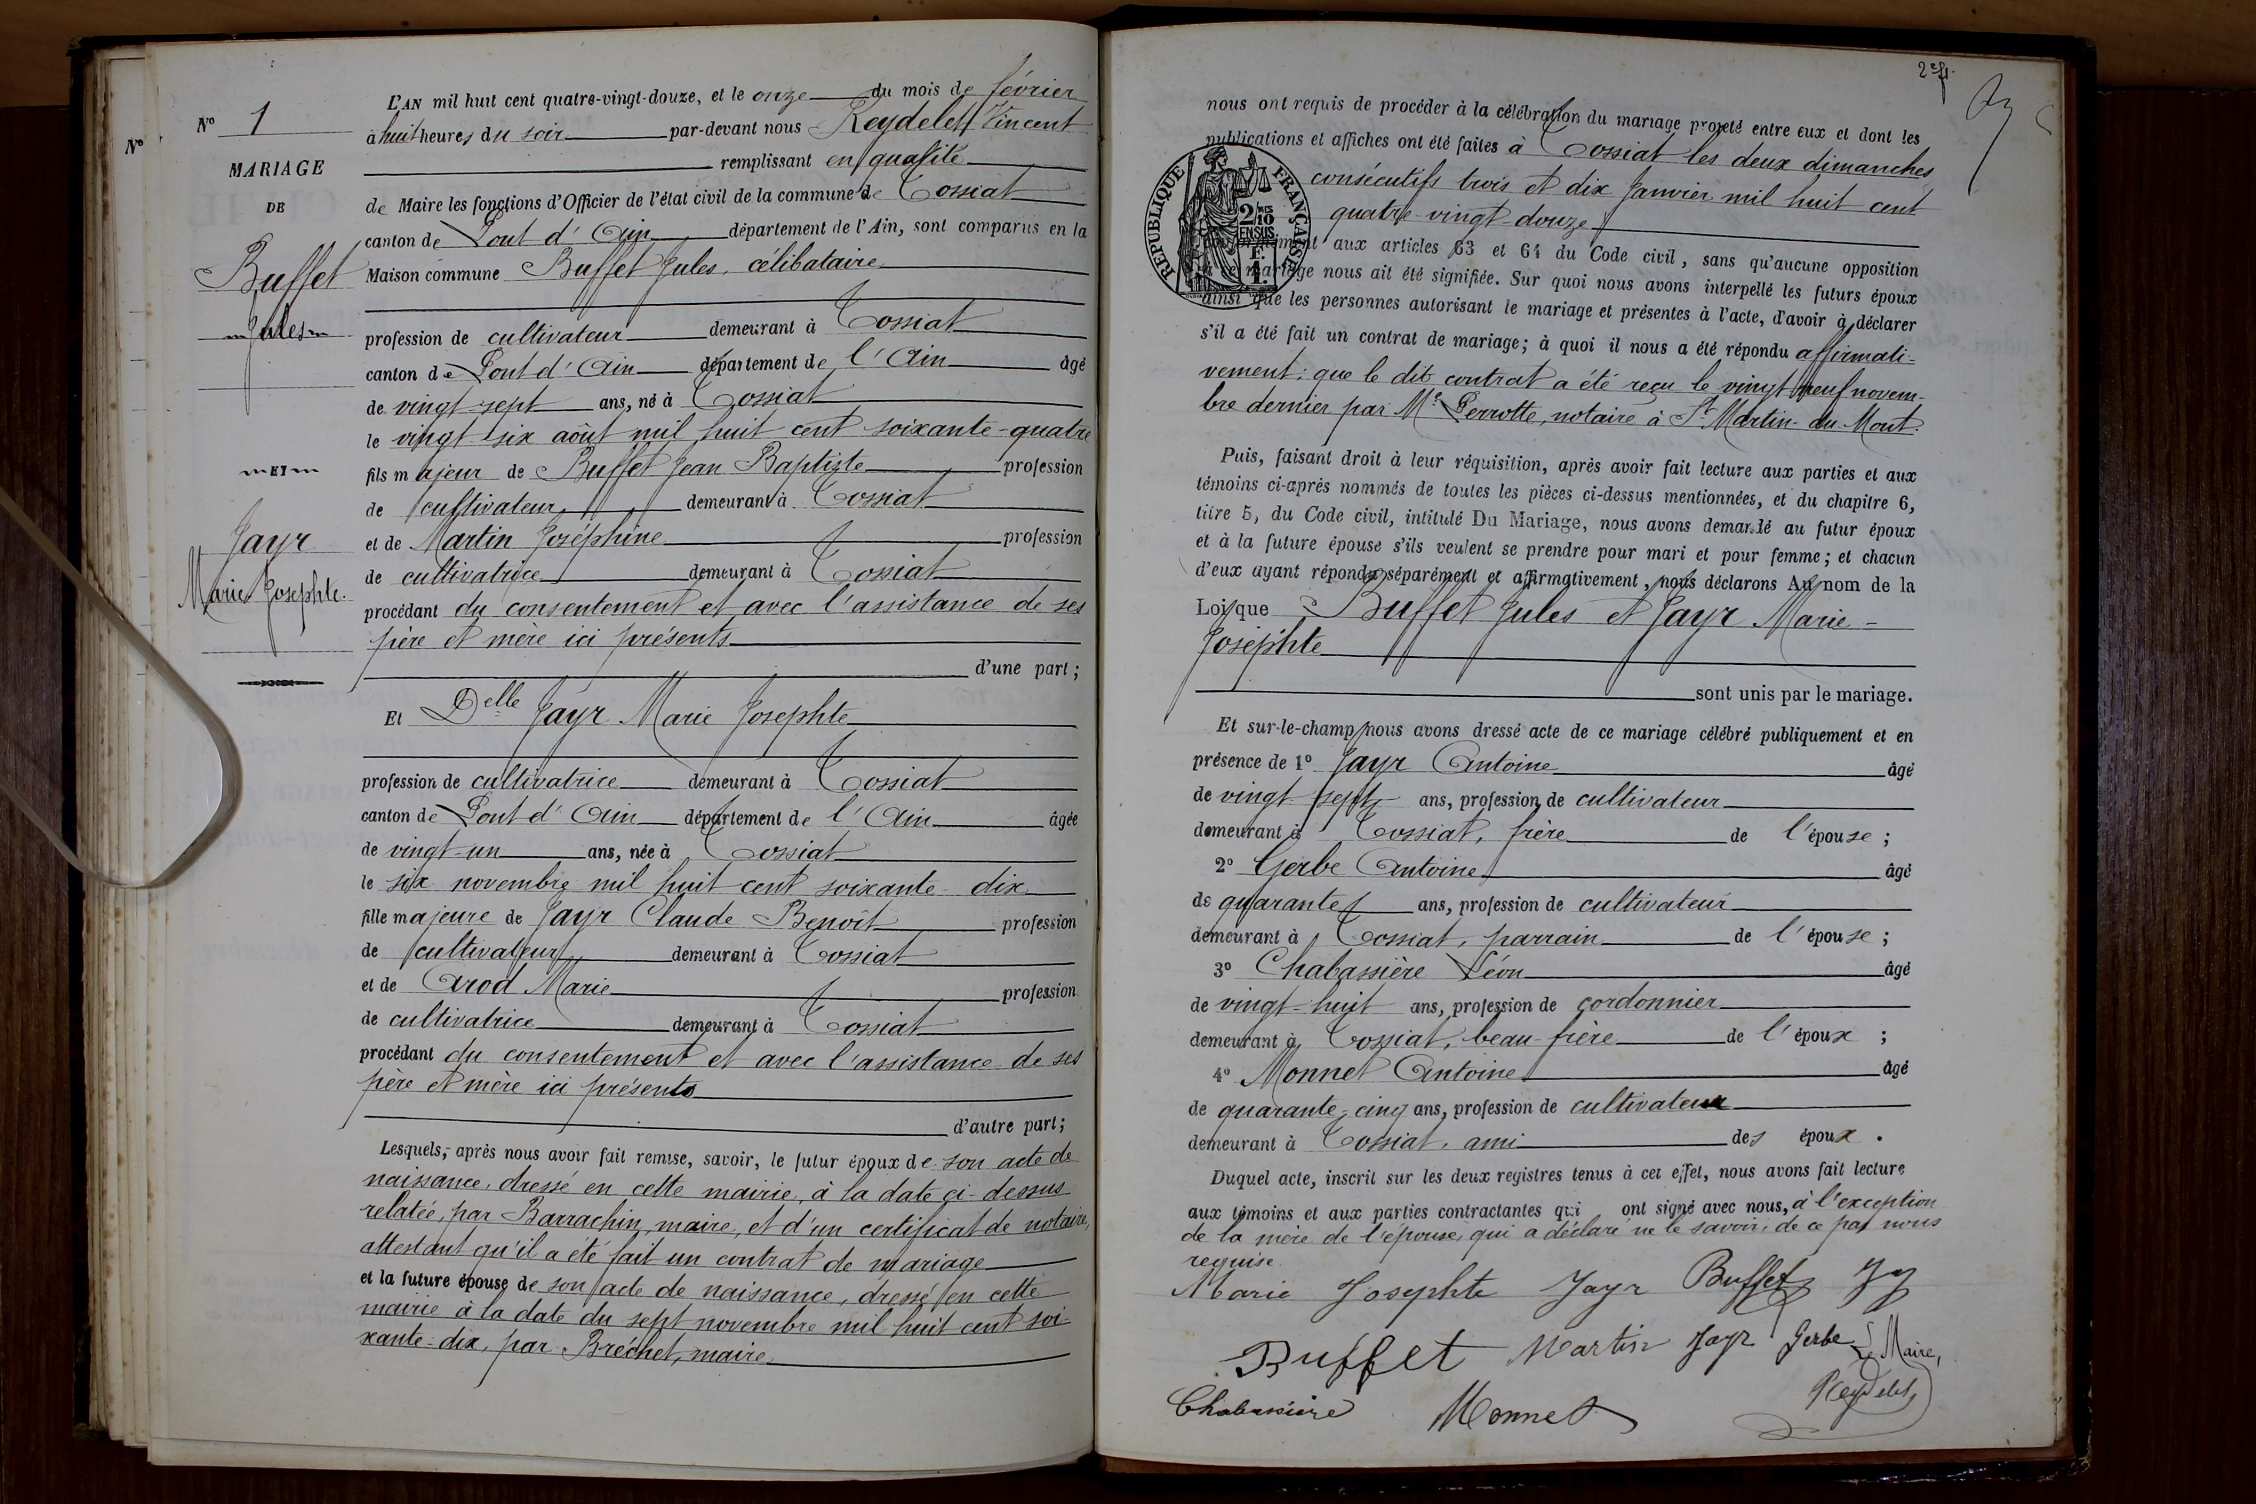 N° 1
N°
MARIAGE
DE
Buffet
Jules
ET
Jayr
Marie Josephte.
L'AN mil huit cent quatre-vingt-douze, et le onze du mois de février
à huit heures du soir par-devant nous Reydelet Vincent
remplissant en qualité
de Maire les fonctions d'Officier de l'état civil de la commune de Tossiat
canton de Pont d'Ain département de l'Ain, sont comparus en la
Maison commune Buffet Jules, célibataire
profession de cultivateur demeurant à Tossiat
canton de Pont d'Ain département de l'Ain âgé
de vingt-sept ans, né à Tossiat
le vingt six août mil huit cent soixante-quatre
fils majeur de Buffet Jean Baptiste profession
de cultivateur demeurant à Tossiat
et de Martin Joséphine profession
de cultivatrice demeurant à Tossiat
procédant du consentement et avec l'assistance de ses
père et mère ici présents
d'une part;
Et Delle Jayr Marie Josephte
profession de cultivatrice demeurant à Tossiat
canton de Pont d'Ain département de l'Ain âgée
de vingt-un ans, née à Tossiat
le six novembre mil huit cent soixante-dix
fille majeure de Jayr Claude Benoît profession
de cultivateur demeurant à Tossiat
et de Arod Marie profession
de cultivatrice demeurant à Tossiat
procédant du consentement et avec l'assistance de ses
père et mère ici présents
d'autre part;
Lesquels, après nous avoir fait remise, savoir, le futur époux de son acte de
naissance, dressé en cette mairie, à la date ci-dessus
relatée, par Barrachin, maire, et d'un certificat de notaire,
attestant qu'il a été fait un contrat de mariage
et la future épouse de son acte de naissance, dressé en cette
mairie à la date du sept novembre mil huit cent soi-
xante-dix, par Bréchet, maire
2e f.
nous ont requis de procéder à la célébration du mariage projeté entre eux et dont les
publications et affiches ont été faites à Tossiat les deux dimanches
consécutifs trois et dix Janvier mil huit cent
quatre-vingt-douze
RÉPUBLIQUE FRANÇAISE
2/10 EN SUS
F.
1.
aux articles 63 et 64 du Code civil, sans qu'aucune opposition
à ce mariage nous ait été signifiée. Sur quoi nous avons interpellé les futurs époux
ainsi que les personnes autorisant le mariage et présentes à l'acte, d'avoir à déclarer
s'il a été fait un contrat de mariage; à quoi il nous a été répondu affirmati-
vement: que le dit contrat a été reçu le vingt neuf novem-
bre dernier par Me Perrotte, notaire à St Martin-du-Mont.
Puis, faisant droit à leur réquisition, après avoir fait lecture aux parties et aux
témoins ci-après nommés de toutes les pièces ci-dessus mentionnées, et du chapitre 6,
titre 5, du Code civil, intitulé Du Mariage, nous avons demandé au futur époux
et à la future épouse s'ils veulent se prendre pour mari et pour femme; et chacun
d'eux ayant répondu séparément et affirmativement, nous déclarons Au nom de la
Loi que Buffet Jules et Jayr Marie-
Joséphte
sont unis par le mariage.
Et sur-le-champ nous avons dressé acte de ce mariage célébré publiquement et en
présence de 1° Jayr Antoine âgé
de vingt-sept ans, profession de cultivateur
demeurant à Tossiat, frère de l'épouse;
2° Gerbe Antoine âgé
de quarante ans, profession de cultivateur
demeurant à Tossiat, parrain de l'épouse;
3° Chabassière Léon âgé
de vingt-huit ans, profession de cordonnier
demeurant à Tossiat, beau-frère de l'époux;
4° Monnet Antoine âgé
de quarante-cinq ans, profession de cultivateur
demeurant à Tossiat, ami des époux.
Duquel acte, inscrit sur les deux registres tenus à cet effet, nous avons fait lecture
aux témoins et aux parties contractantes qui ont signé avec nous, à l'exception
de la mère de l'épouse, qui a déclaré ne le savoir, de ce par nous
requise.
Marie Josephte Jayr Buffet
Buffet Martin Jayr Gerbe Le Maire,
Chabassière Monnet Reydelet